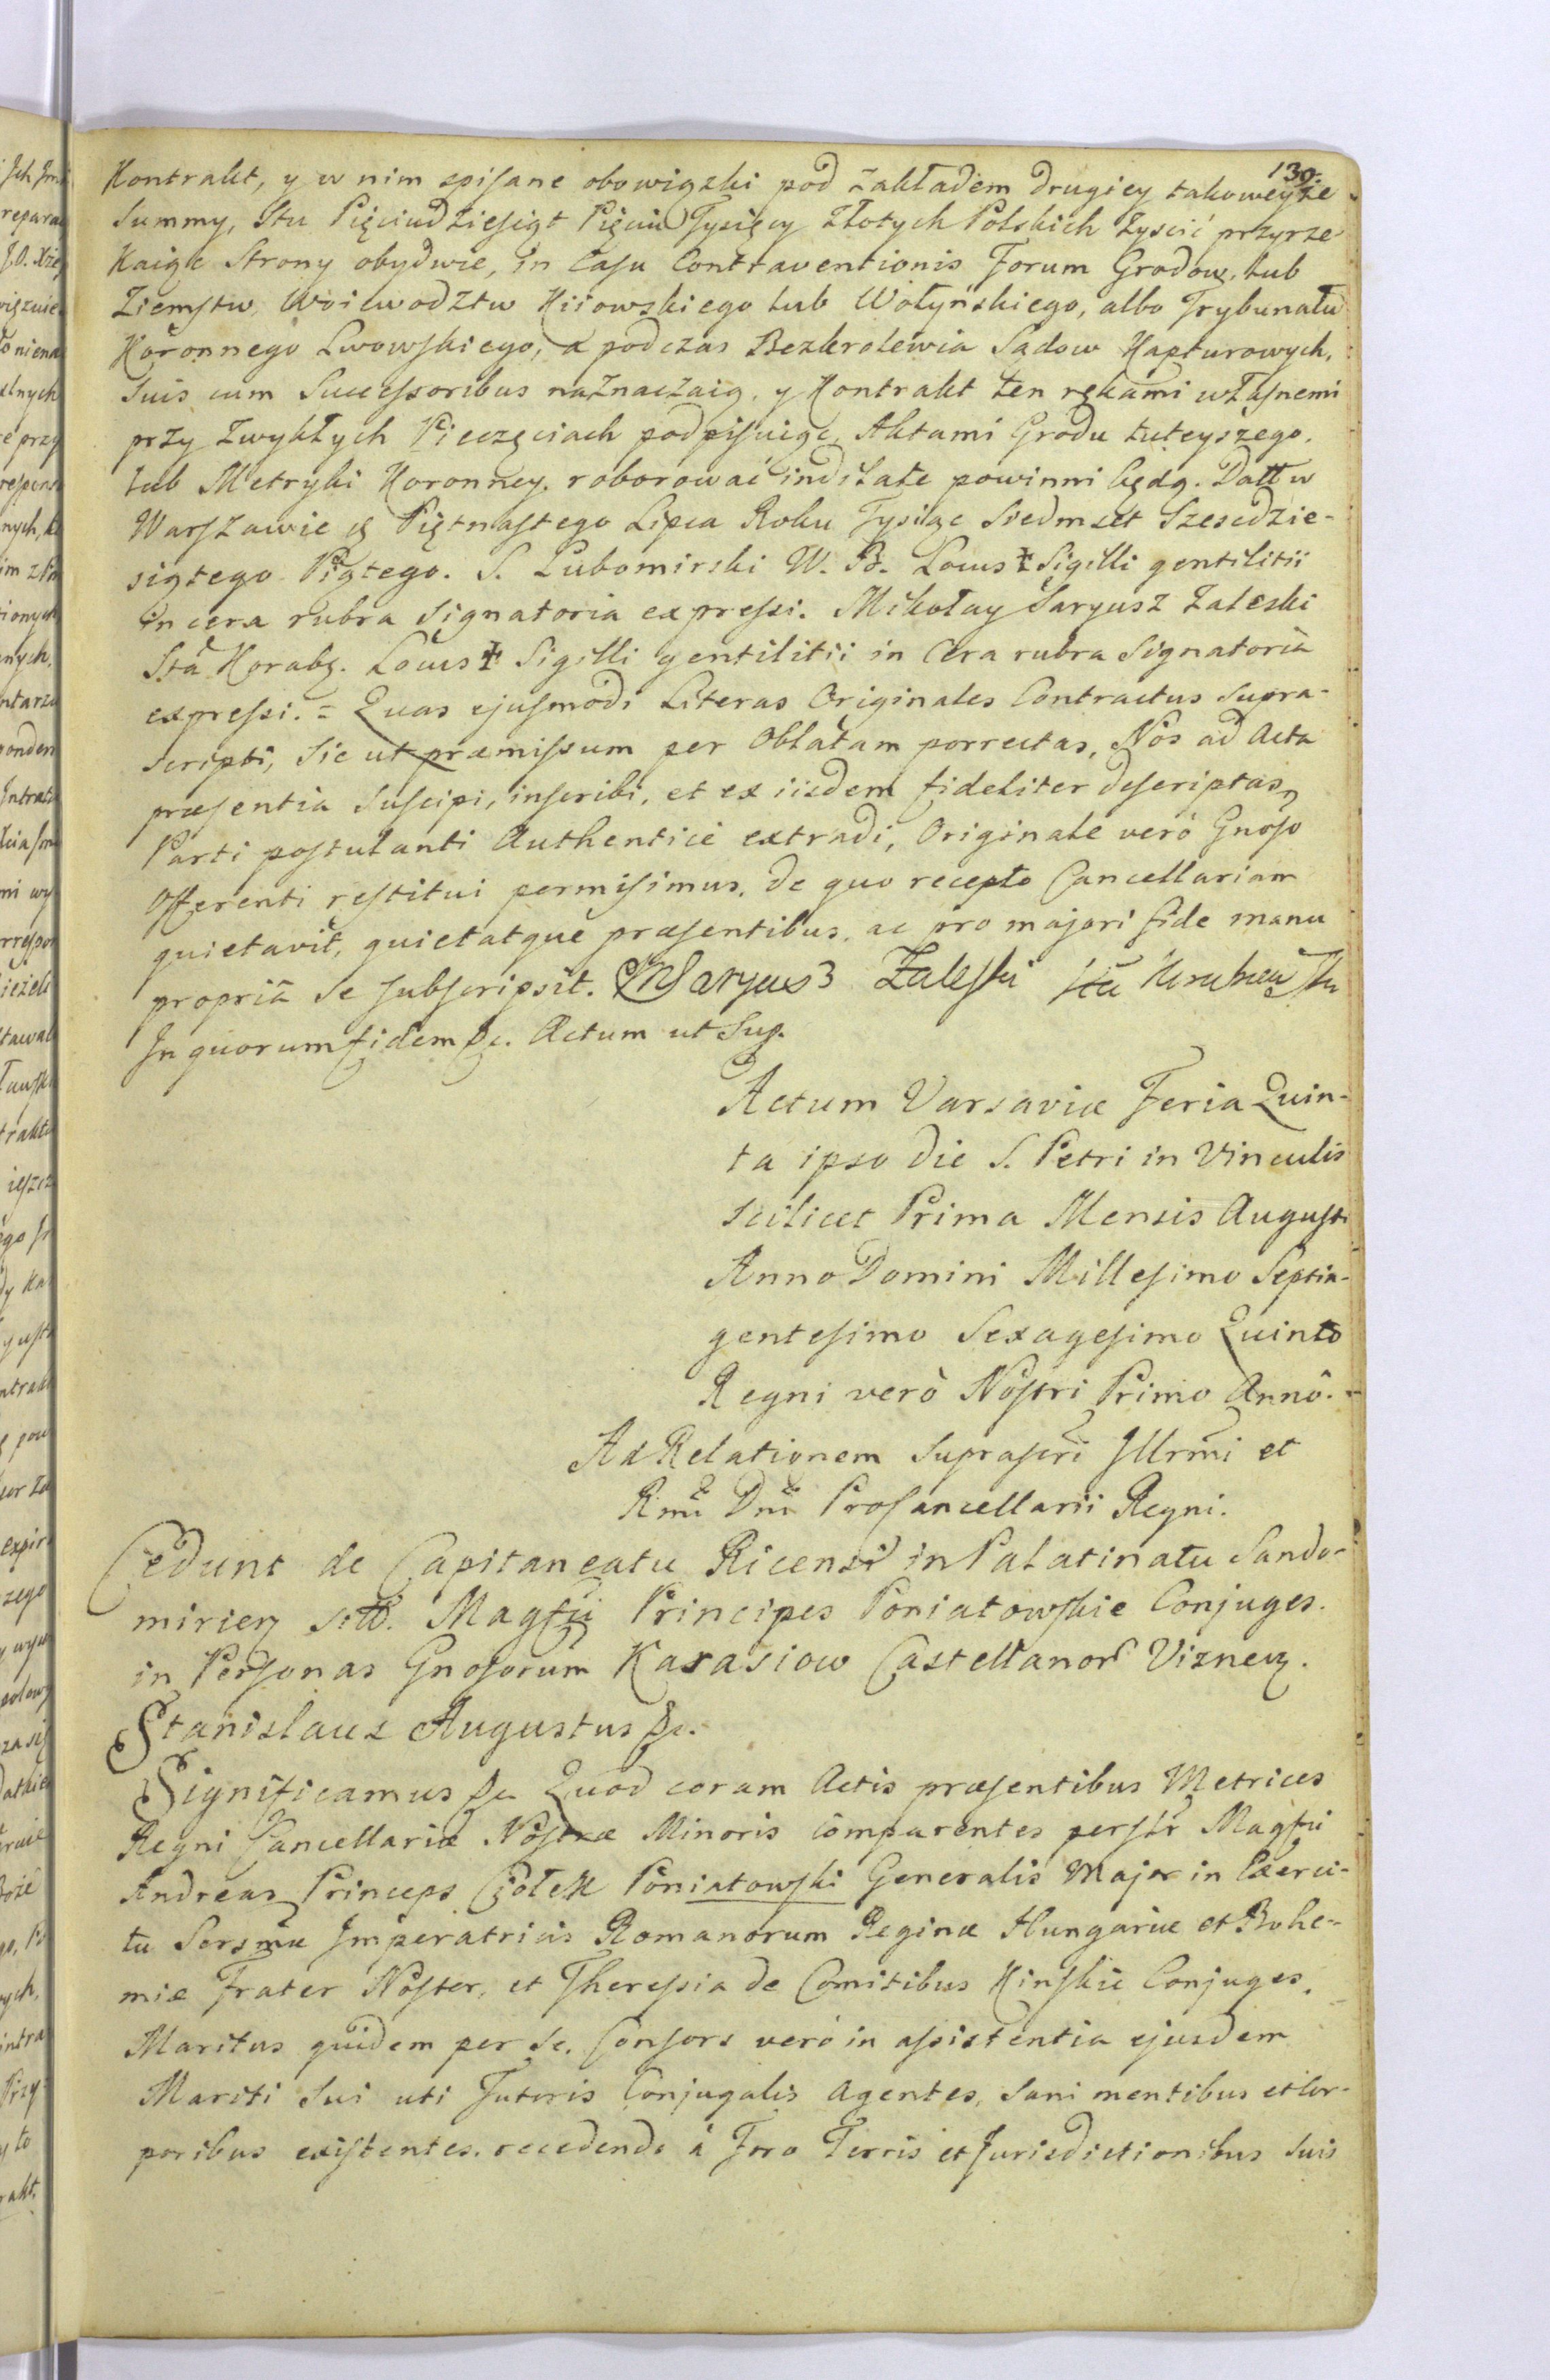 139.
Kontrakt, y w nim spisane obowiązki pod zakładem drugiey takoweyże
Summy, Stu Pięciudziesiąt Pięciu Tysięcy Złotych Polskich zyscić przyrze
kaiąc Strony obydwie, in Casu Contraventionis Forum Grodow, lub
Ziemstw, Woiewodztw Kiiowskiego lub Wołyńskiego, albo Trybunału
Koronnego Lwowskiego, a podczas Bezkrolewia Sądow Kapturowych,
suis cum Successoribus naznaczaią, y Kontrakt ten rękami własnemi
przy zwykłych Pieczęciach podpisuiąc, Aktami Grodu tuteyszego,
lub Metryki Koronney, roborować indilate powinni będą. Datt w
Warszawie Piętnastego Lipca Roku Tysiąc Siedmset Szescdzie-
siątego Piątego. S. Lubomirski W. B. Locus ‡ Sigilli gentilitii
in cera rubra signatoria expressi. Mikołay Saryusz Zaleski
Sta Horabg. Locus ‡ Sigilli gentilitii in Cera rubra Signatoria
expressi. = Quas ejusmodi Literas Originales Contractus supra-
scripti, sic ut præmissum per Oblatam porrectas, Nos ad Acta
præsentia suscipi, inscribi, et ex iisdem fideliter descriptas,
Parti postulanti Authentice extradi, Originale verò Gnoso
Offerenti restitui permisimus, de quo recepto Cancellariam
quietavit, quietatque præsentibus, ac pro majori fide manu
propriâ se subscripsit. MSaryusz Zaleski Sta
In quorum fidem &c. Actum ut Sup.
Actum Varsaviæ Feria Quin-
ta ipso die S. Petri in Vinculis
scilicet Prima Mensis Augusti
Anno Domini Millesimo Septin-
gentesimo Sexagesimo Quinto
Regni verò Nostri Primo Annô.
Ad Relationem suprascri Illrmi et
Rmi Dni ProCancellarii Regni.
Cedunt de Capitaneatu Ricensi in Palatinatu Sando-
mirien sitô. Magfci Principes Poniatowskie Conjuges.
in Personas Gnosorum Karasiow Castellanor Viznen.
Stanislaus Augustus &c.
Significamus &c. Quod coram Actis præsentibus Metrices
Regni Cancellariæ Nostræ Minoris comparentes perslr Magfci
Andreas Princeps Ciołek Poniatowski Generalis Major in Exerci-
tu Sersmæ Imperatricis Romanorum Reginæ Hungariæ et Bohe-
miæ Frater Noster, et Theressia de Comitibus Kinskie Conjuges,
Maritus quidem per se, Consors verò in assistentia ejusdem
Mariti sui uti Tutoris Conjugalis Agentes, sani mentibus et Cor-
poribus existentes, recedendo à Foro Terris et Jurisdictionibus suis